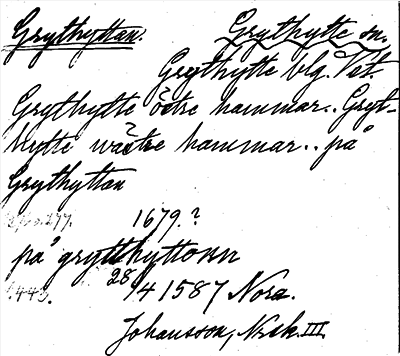 Grythyttan. Grythytte sn.
Grythytte blg. Vst.
Grythytte östre hammar.. Gryt-
hytte wästre hammar.. på
Grythyttan
1679.?
på grytthyttonn
28/4 1587 Nora.
Johansson, Norsk. III.